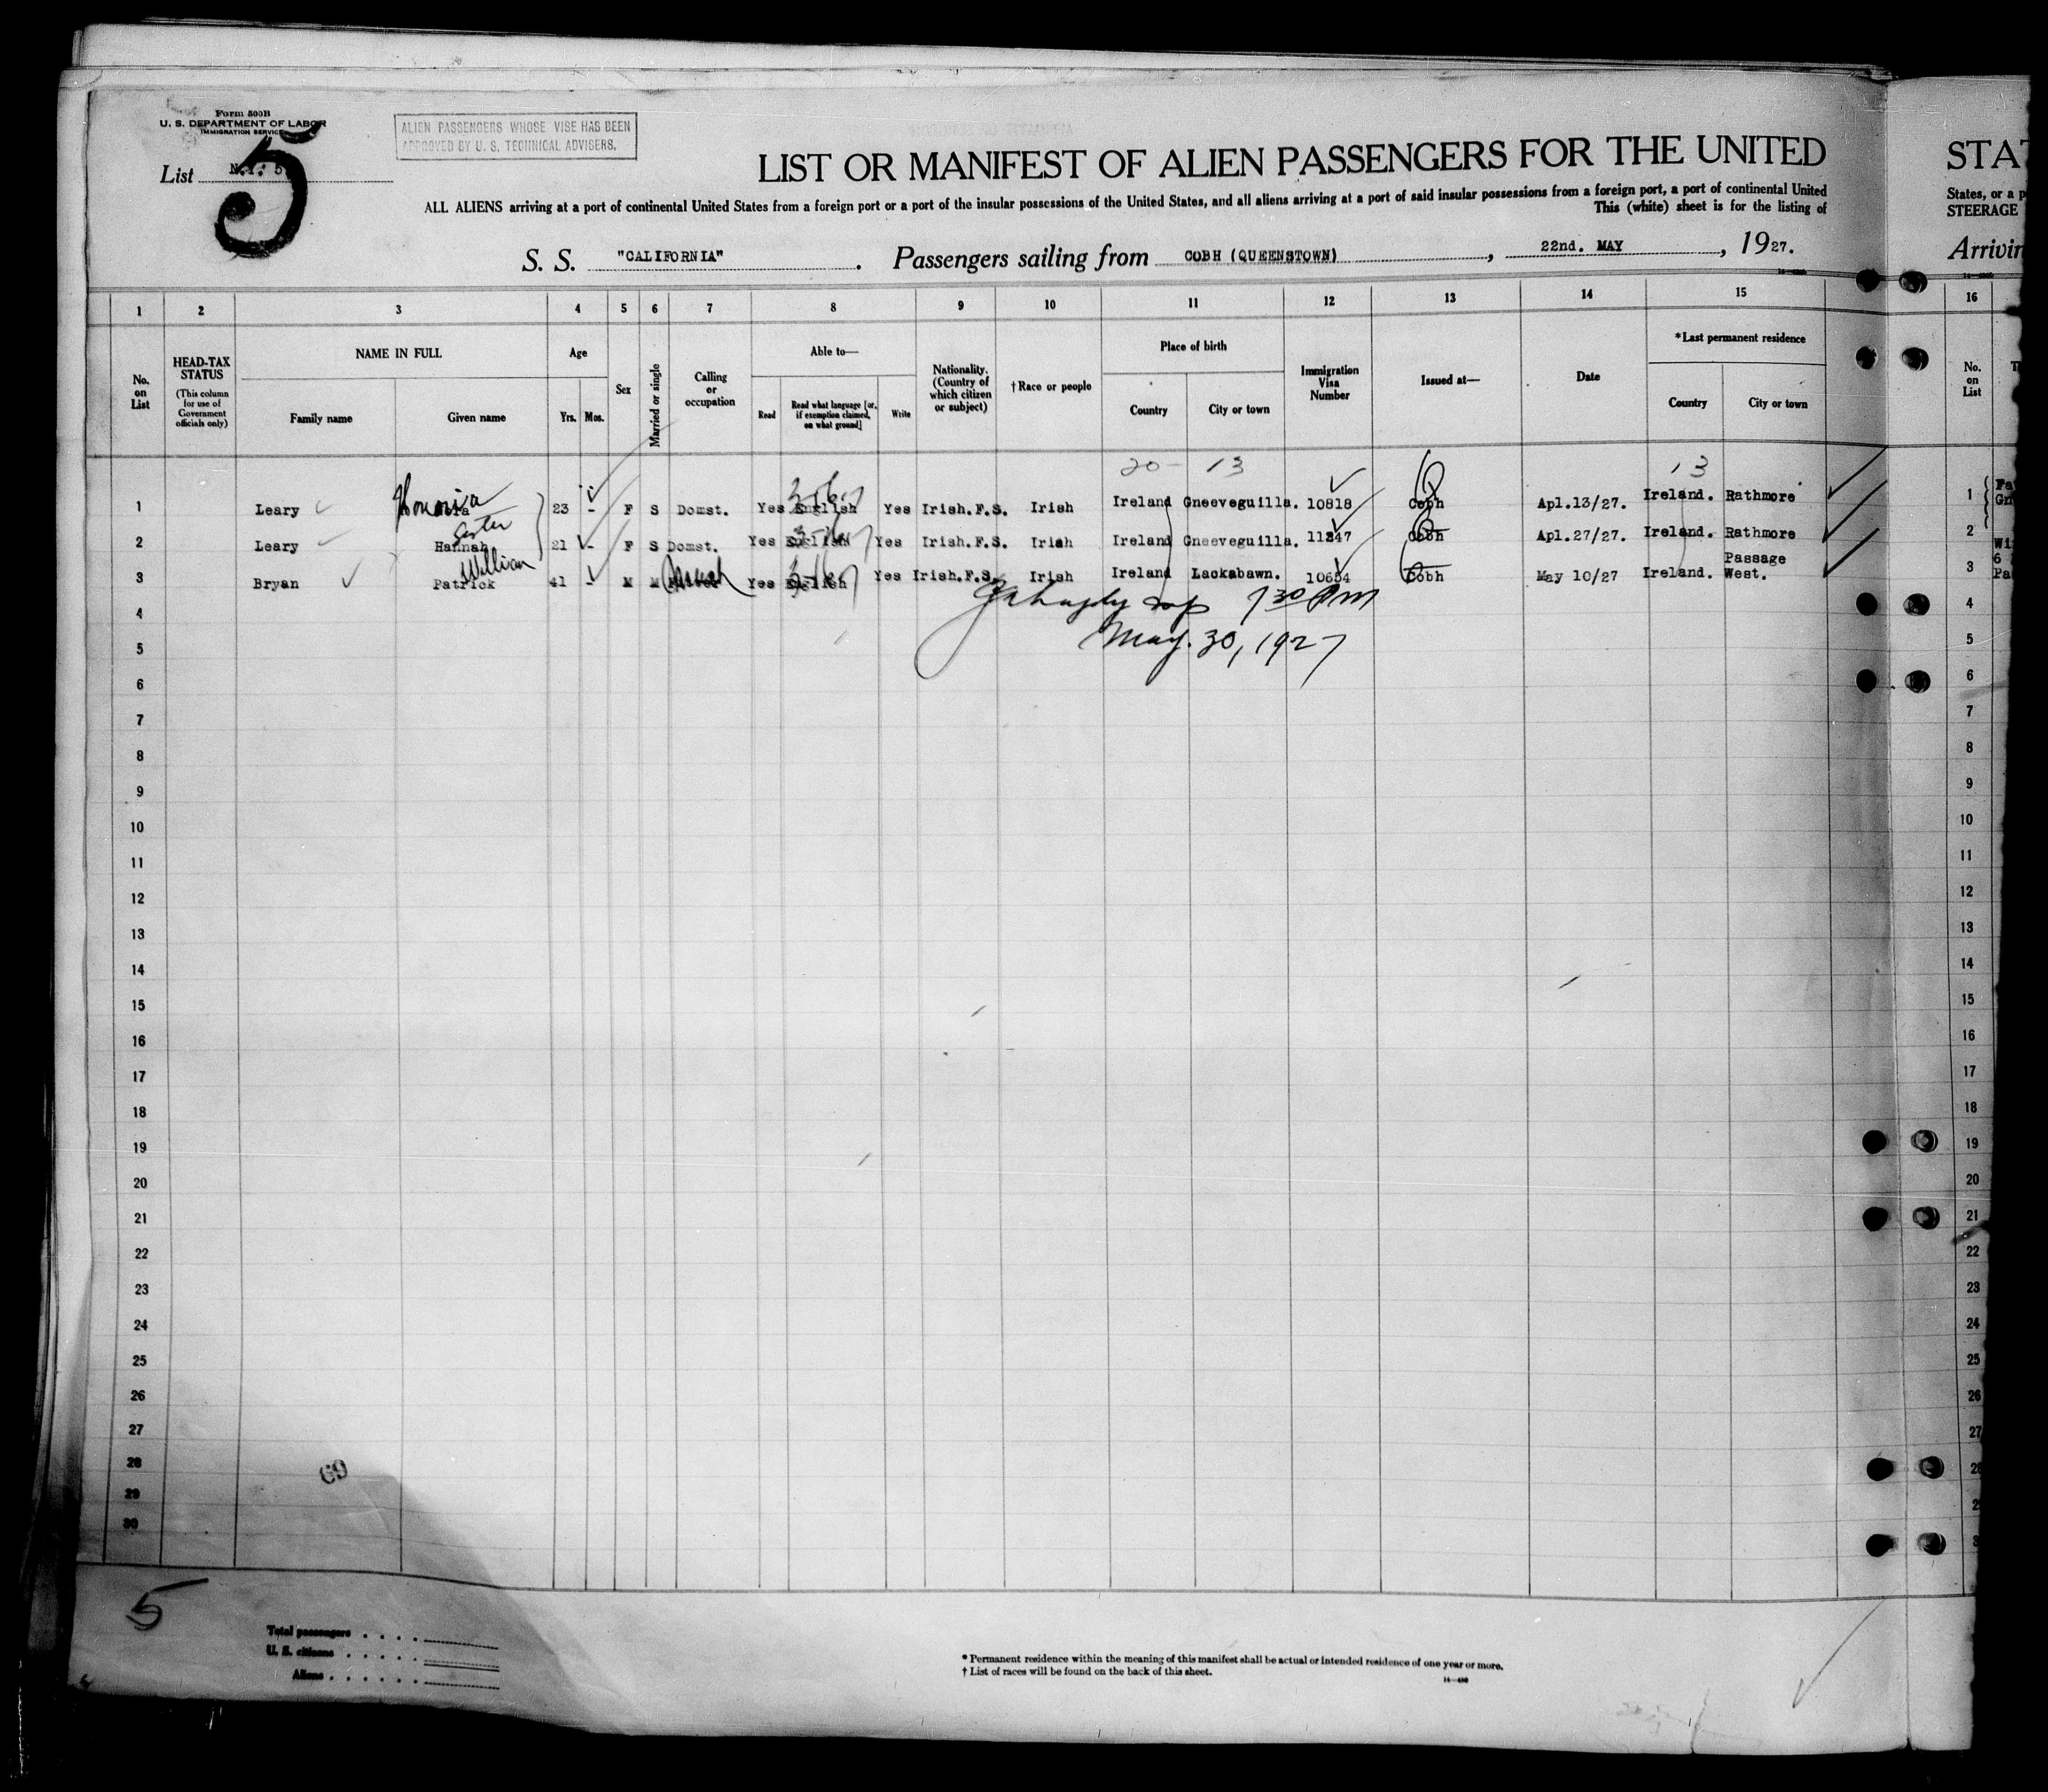 Form 500B
U. S. DEPARTMENT OF LABOR
IMMIGRATION SERVICE
ALIEN PASSENGERS WHOSE VISE HAS BEEN
APPROVED BY U. S. TECHNICAL ADVISERS.
List N.Y. 5
5
LIST OR MANIFEST OF ALIEN PASSENGERS FOR THE UNITED
ALL ALIENS arriving at a port of continental United States from a foreign port or a port of the insular possessions of the United States, and all aliens arriving at a port of said insular possessions from a foreign port, a port of continental United
This (white) sheet is for the listing of
S. S. "CALIFORNIA". Passengers sailing from COBH (QUEENSTOWN), 22nd. MAY, 1927.
STAT
States, or a p
STEERAGE
Arrivin
1 2 3 4 5 6 7 8 9 10 11 12 13 14 15 16
No. on List
HEAD-TAX STATUS
(This column for use of Government officials only)
NAME IN FULL
Family name Given name
Age
Yrs. Mos.
Sex
Married or single
Calling or occupation
Able to—
Read Read what language [or, if exemption claimed, on what ground] Write
Nationality. (Country of which citizen or subject)
†Race or people
Place of birth
Country City or town
Immigration Visa Number
Issued at—
Date
*Last permanent residence
Country City or town
No. on List
20 - 13 13
1 Leary Honoria 23 - F S Domst. Yes English Yes Irish.F.S. Irish Ireland Gneeveguilla. 10818 Cobh Apl.13/27. Ireland. Rathmore 1
Sister
2 Leary Hannah 21 - F S Domst. Yes English Yes Irish.F.S. Irish Ireland Gneeveguilla. 11247 Cobh Apl.27/27. Ireland. Rathmore 2
William
3 Bryan Patrick 41 - M M Yes English Yes Irish.F.S. Irish Ireland Lackabawn. 10654 Cobh May 10/27 Ireland. Passage West. 3
4 7 30 PM 4
5 May. 30, 1927 5
6 6
7 7
8 8
9 9
10 10
11 11
12 12
13 13
14 14
15 15
16 16
17 17
18 18
19 19
20 20
21 21
22 22
23 23
24 24
25 25
26 26
27 27
28 69 28
29 2
30 3
5
Total passengers
U. S. citizens
Aliens
* Permanent residence within the meaning of this manifest shall be actual or intended residence of one year or more.
† List of races will be found on the back of this sheet.